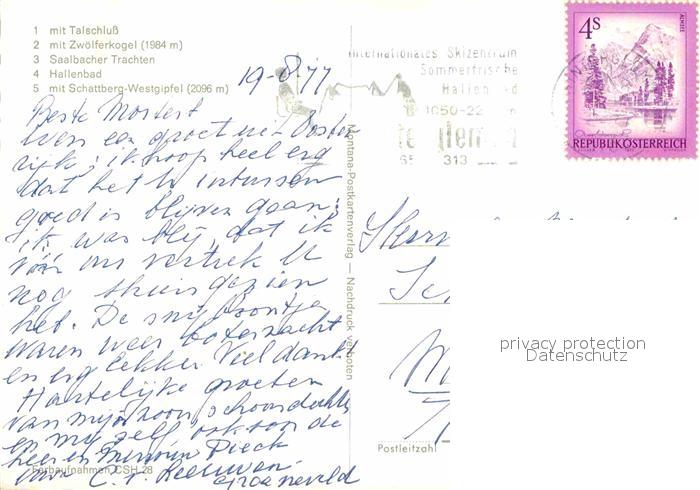 1 mit Talschluß
2 mit Zwölferkogel (1984 m)
3 Saalbacher Trachten
4 Hallenbad
5 mit Schattberg-Westgipfel (2096 m)
19-8 77
Internationales Skizentrum
Sommerfrische
Hallen
4S
ALMSEE
REPUBLIK ÖSTERREICH
Beste
Weer een groet uit Ooste
rijk; ik hoop heel erg
dat het U intussen
goed is blijven gaan;
ik was blij, dat ik
vóór ons vertrek U
nog thuis gezien
heb. De snijboontjes
waren weer boterzacht
en erg lekker. Veel dank.
Hartelijke groeten
van mijn zoon, schoondochter
en mij zelf, ook voor de
heer en Pieck
C. v. Leeuwen
Montana-Postkartenverlag — Nachdruck verboten
Postleitzahl
Farbaufnahmen CSH 28
privacy protection
Datenschutz